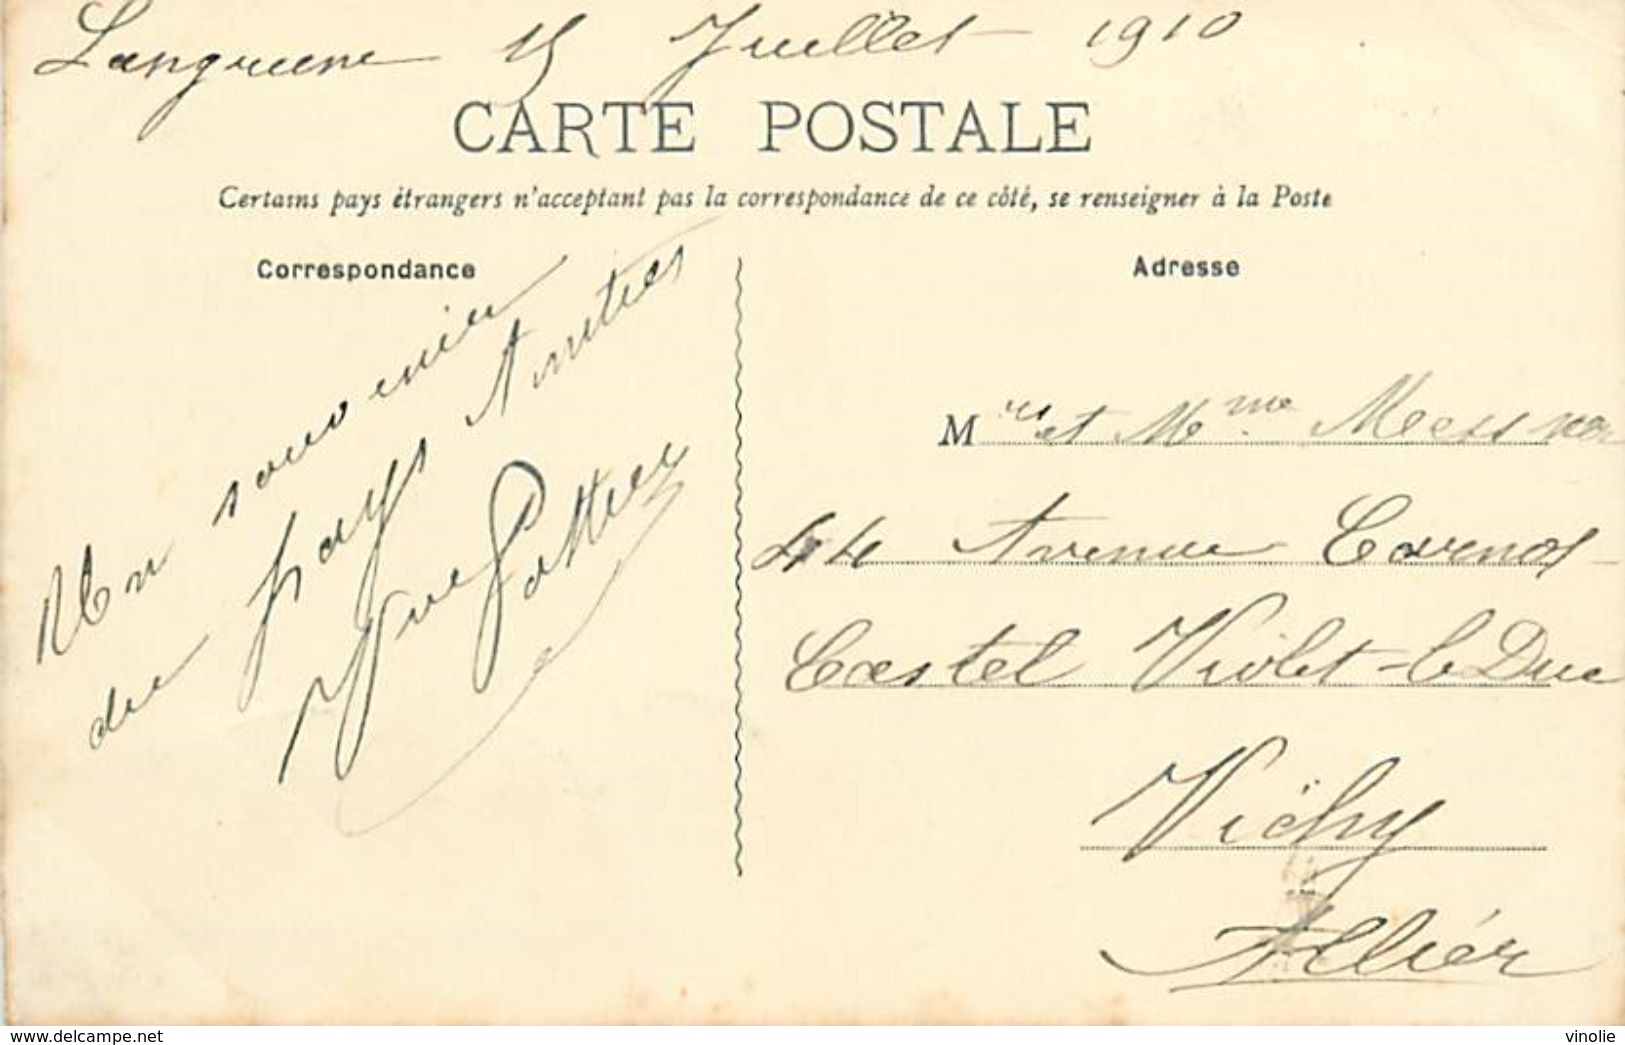 Langruene 15 Juillet 1910
CARTE POSTALE
Certains pays étrangers n'acceptant pas la correspondance de ce côté, se renseigner à la Poste
Correspondance
Un souvenir
du pays Amities
Pottier
Adresse
M et Mme
44 Avenue Carnot
Castel Violet-le Duc
Vichy
Alliér
www.delcampe.net
vinolie